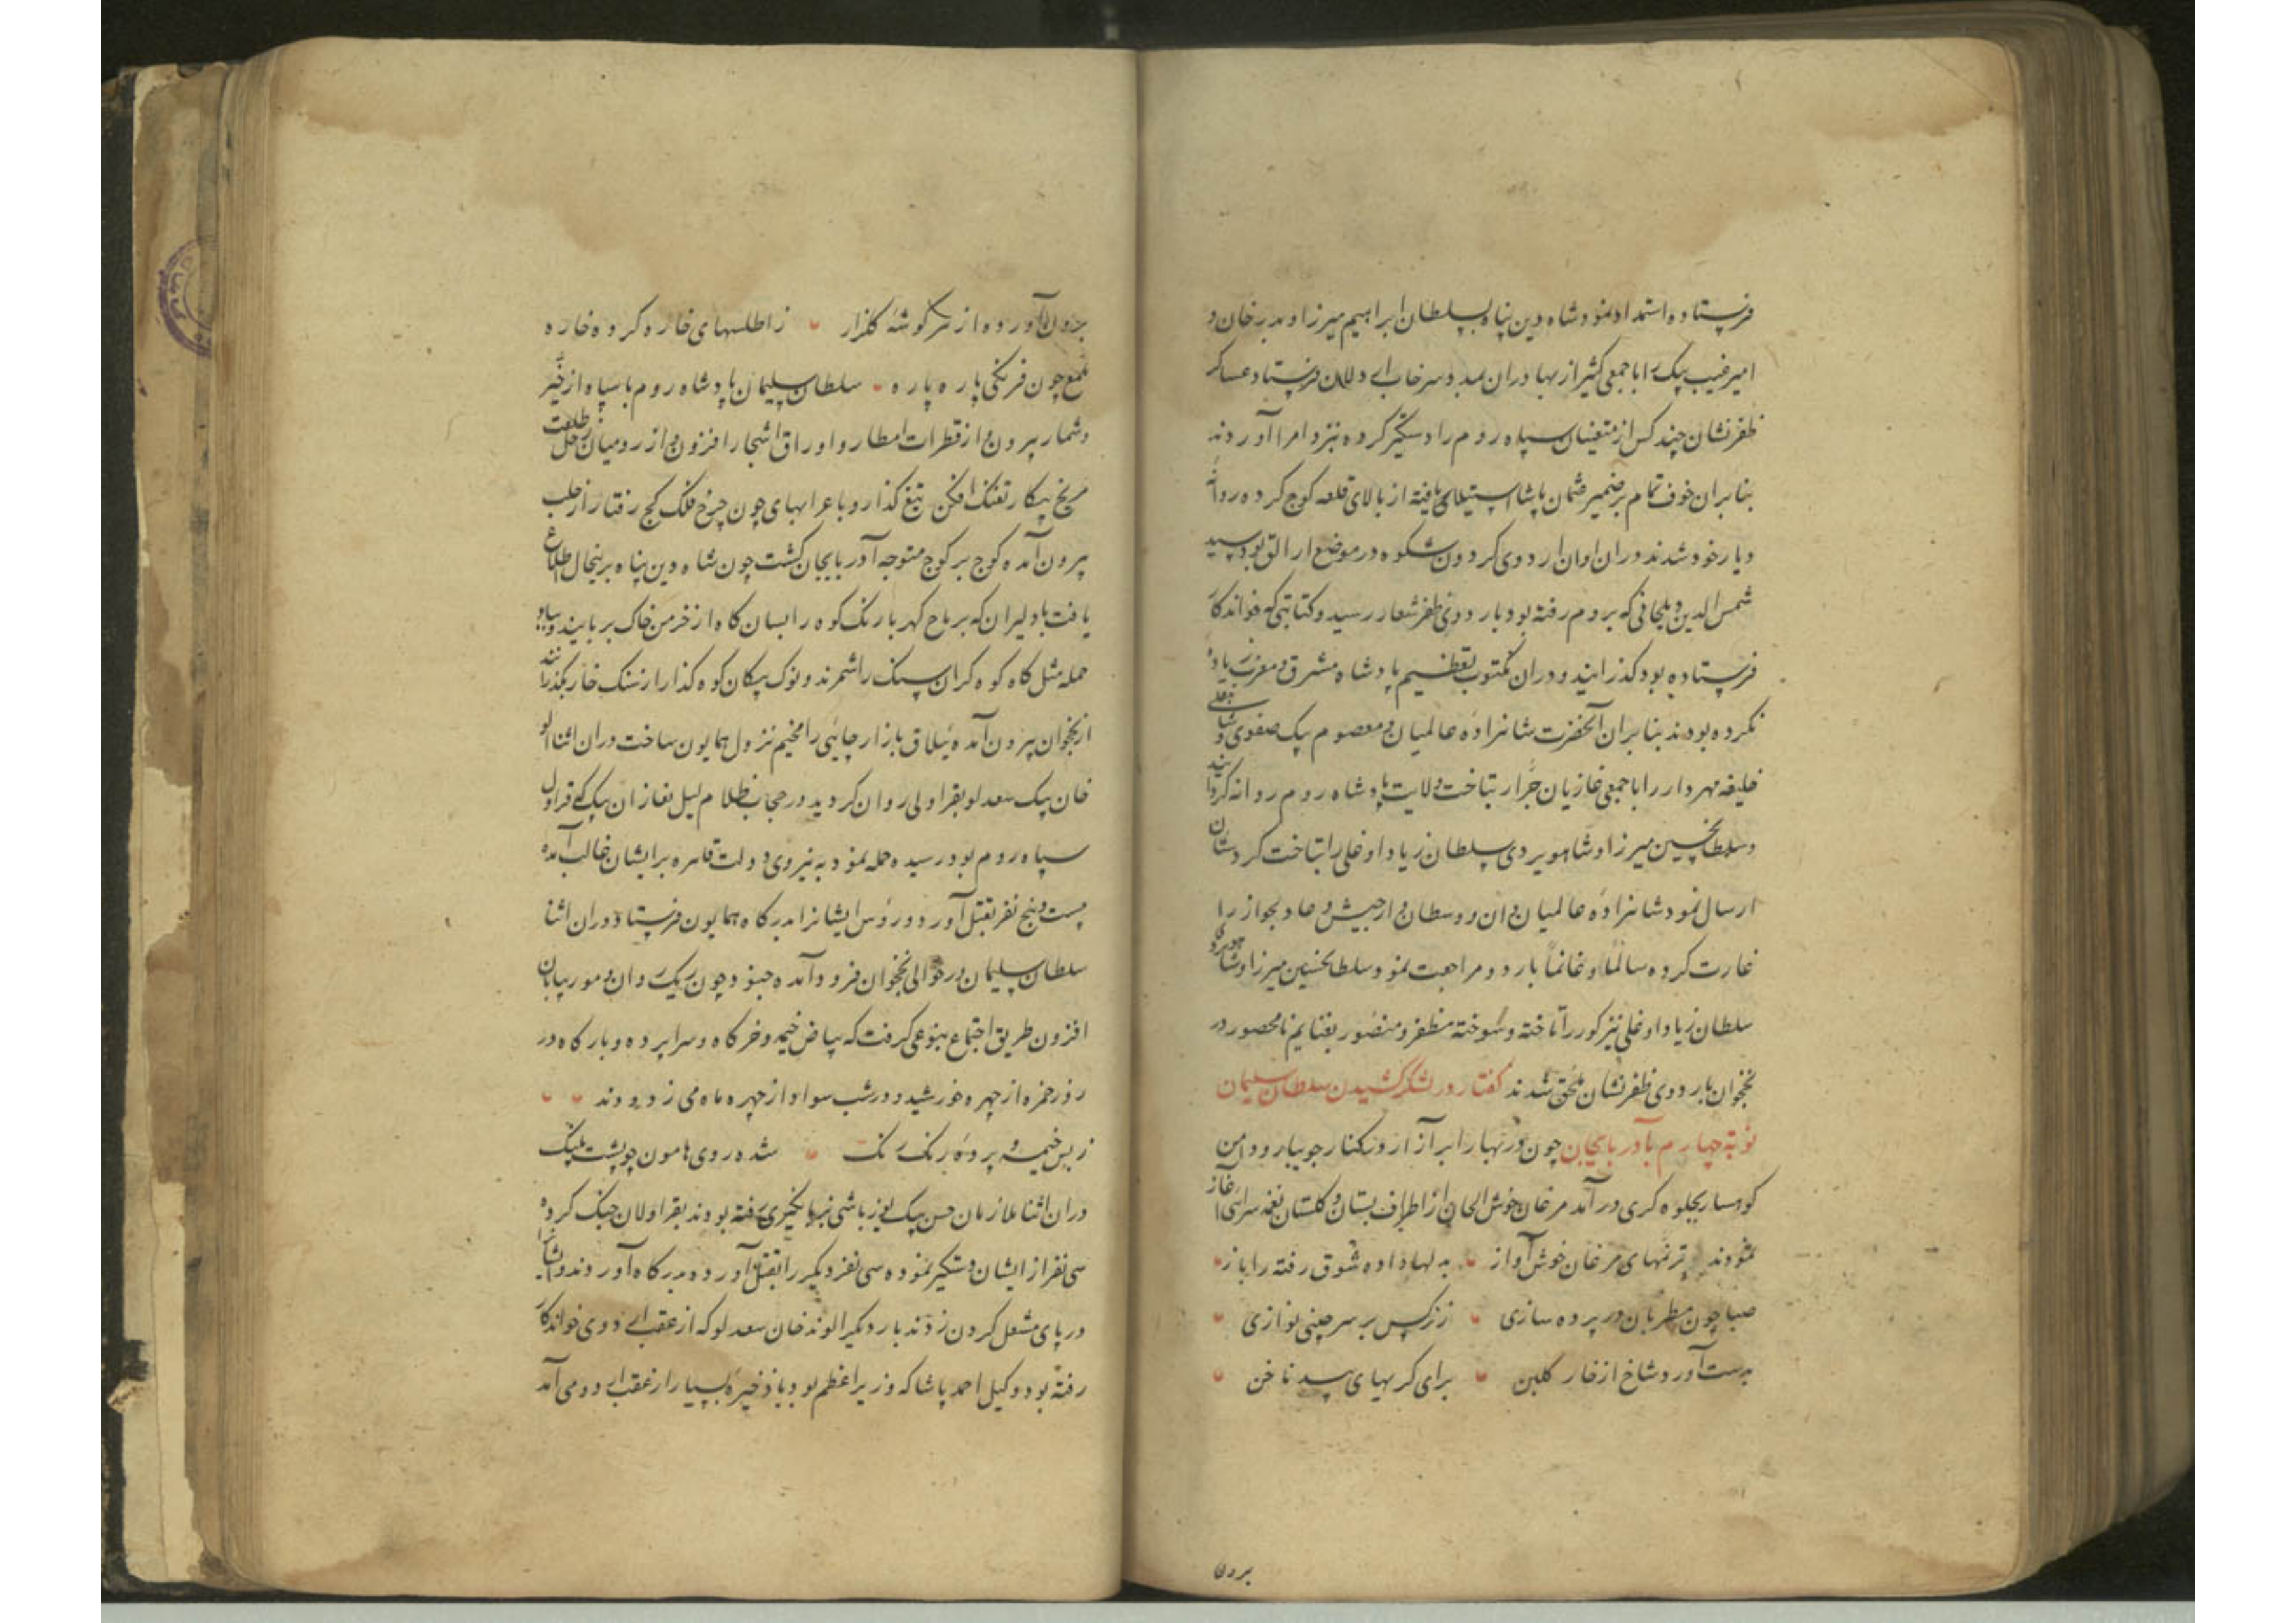 فرستاده استمداد نمود شاه دین پناه سلطان ابراهیم میرزا و بدر خان و
امیر غیب بیک را با جمعی کثیر از بهادران بمدد فرستاد عساکر
ظفرنشان چند کس از متعینان سپاه روم را دستگیر کرده نزد امرا آوردند
بنابران خوف تمام بر ضمیر پاشا استیلا یافته از بالای قلعه کوچ کرده روانهٔ
دیار خود شدند دران اوان اردوی کردون شکوه در موضع ارالق بود سید
شمس الدین دیلجانی که بروم رفته بود باردوی ظفرشعار رسید و کتابتی که خواندکار
فرستاده بود کذرانید و دران مکتوب تعظیم پادشاه مشرق و مغرب یاد
نکرده بودند بنابران آنحضرت شاهزادهٔ عالمیان و معصوم بیک صفوی و شاهقلی
خلیفه مهردار را با جمعی غازیان جرّار بتاخت ولایت پادشاه روم روانه کردانیدند
و سلطان حسین میرزا و شاهویردی سلطان زیاد اوغلی را بتاخت کردستان
ارسال نمود شاهزادهٔ عالمیان وان و وسطان و ارجیش و عادلجواز را
غارت کرده سالماً و غانماً باردو مراجعت نمود و سلطان حسین میرزا و شاهویردی
سلطان زیاد اوغلی نیز کور را تاخته و سوخته مظفر و منصور بغنایم نامحصور در
نخجوان باردوی ظفرنشان ملحق شدند گفتار در لشکر کشیدن سلطان سلیمان
نوبة چهارم بآذربایجان چون در بهار ابر آزار در کنار جویبار و دامن
کوهسار بجلوه کری در آمد مرغان خوش الحان از اطراف بستان و کلستان نغمه سرائی آغاز
نمودند ترنمهای مرغان خوش آواز به لها داده شوق رفته را باز
صبا چون مطربان در پرده سازی ز نرکس بر سر چینی نوازی
بدست آورد شاخ از خار کلبن برای کرهای سد ناخن
برون
برون آورده از هر گوشه کلزار ز اطلسهای خار و کرده خاره
ملمع چون فرنکی پاره پاره سلطان سلیمان پادشاه روم با سپاه از حیّز
شمار بیرون و از قطرات امطار و اوراق اشجار افزون و از رومیان زحل طلعت
مریخ پیکار تفنک افکن تیغ گذار و با عرابهای چون چرخ فلک کج رفتار از حلب
بیرون آمده کوچ بر کوچ متوجه آذربایجان کشت چون شاه دین پناه برینحال اطلاع
یافت با دلیران که برماح کهربا رنک کوه را بسان کاه از خرمن خاک بربایند و بباد
حمله مثل کاه کوه کران سنک را شمرند و نوک پیکان کوه کذار از سنک خار بگذرانند
از نخجوان بیرون آمده ییلاق بازار چایی را مخیم نزول همایون ساخت دران اثنا الوند
خان بیک سعدلو بقراولی روان کردید در حجاب ظلام لیل بغازان بیک که قراول
سپاه روم بود رسیده حمله نمود به نیروی دولت قاهره بر ایشان غالب آمده
بیست و پنج نفر بقتل آورد و رؤس ایشانرا بدرکاه همایون فرستاد دران اثنا
سلطان سلیمان در حوالی نخجوان فرود آمده جنود چون ریک روان و مور بیابان
افزون طریق اجتماع بنوعی کرفت که بیاض خیمه و خرکاه و سراپرده و بارکاه در
روز حمره از چهره خورشید و در شب سواد از چهره ماه می زدودند
ز بس خیمه و پردهٔ رنک رنک شده روی هامون چو پشت پلنک
دران اثنا ملازمان حسن بیک یوزباشی بزبانگیری رفته بودند بقراولان جنک کرده
سی نفر از ایشان دستگیر نموده سی نفر دیگر را بقتل آورده بدرکاه آوردند و ایشانرا
در پای مشعل کردن زدند بار دیگر الوند خان سعدلو که از عقب اردوی خواندکار
رفته بود و وکیل احمد پاشا که وزیر اعظم بود با ذخیرهٔ بسیار از عقب اردو می آمد